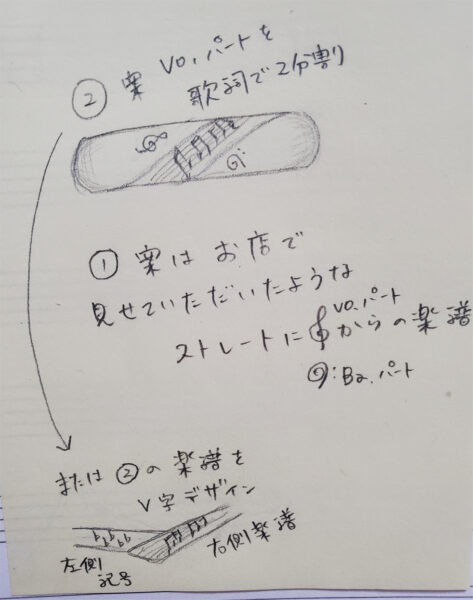 ② 案 Vo.パートを
歌詞で2分割
① 案は お店で
見せていただいたような
ストレートに Vo.パート
からの楽譜
Ba.パート
または ② の 楽譜を
V字デザイン
左側
記号
右側楽譜